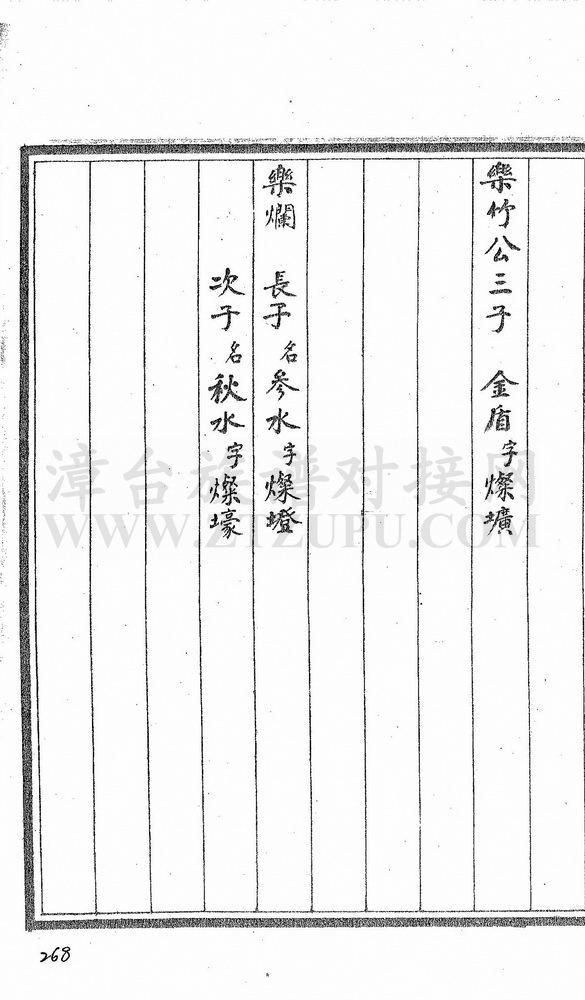 樂竹公三子 金盾字燦壙
樂爛 長子名參水字燦墱
次子名秋水字燦壕
漳台族谱对接网
WWW.ZTZUPU.COM
268